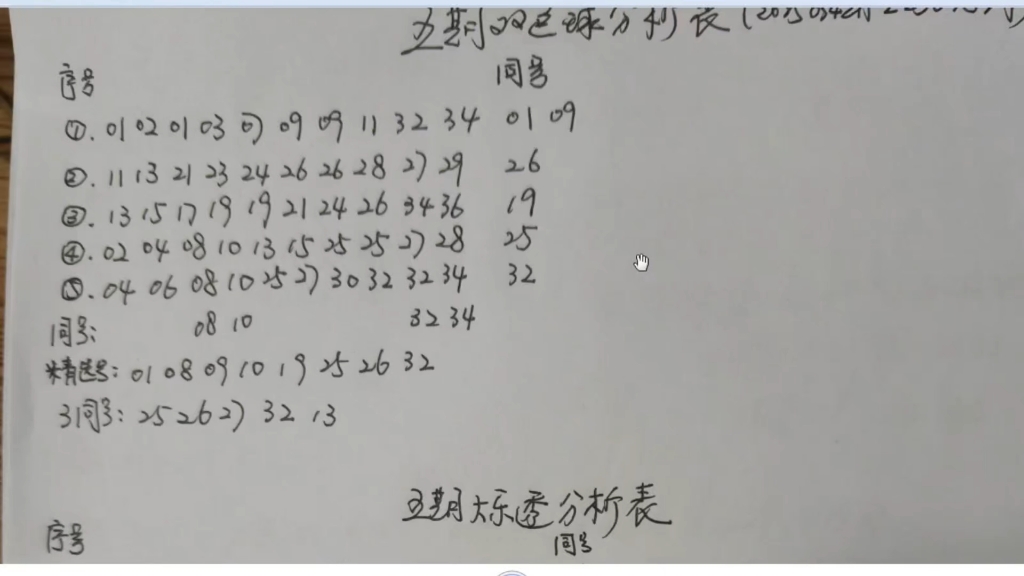 五期双色球分析表
序号 同号
①. 01 02 01 03 07 09 09 11 32 34 01 09
②. 11 13 21 23 24 26 26 28 27 29 26
③. 13 15 17 19 19 21 24 26 34 36 19
④. 02 04 08 10 13 15 25 25 27 28 25
⑤. 04 06 08 10 25 27 30 32 32 34 32
同号: 08 10 32 34
精选号: 01 08 09 10 19 25 26 32
3同号: 25 26 27 32 13
五期大乐透分析表
序号 同号